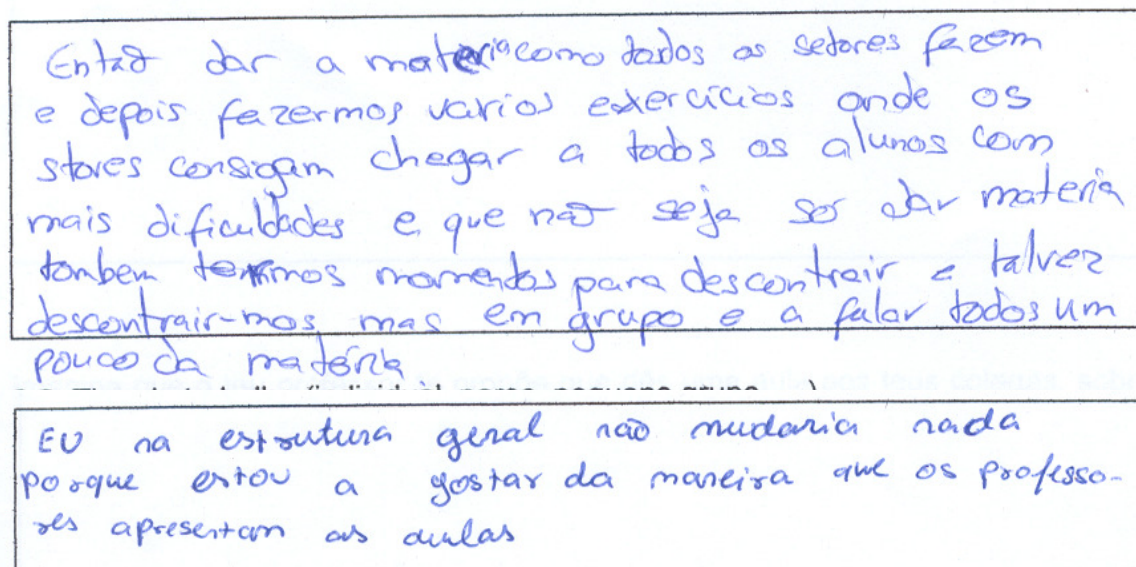 Entaõ dar a materia como todos os setores fazem
e depois fazermos varios exercícios onde os
stores consigam chegar a todos os alunos com
mais dificuldades e que naõ seja sor dar materia
tambem termos momentos para descontrair e talvez
descontrair-mos mas em grupo e a falar todos um
pouco da matéria
EU na estrutura geral não mudaria nada
porque estou a gostar da maneira que os professo-
res apresentam as aulas